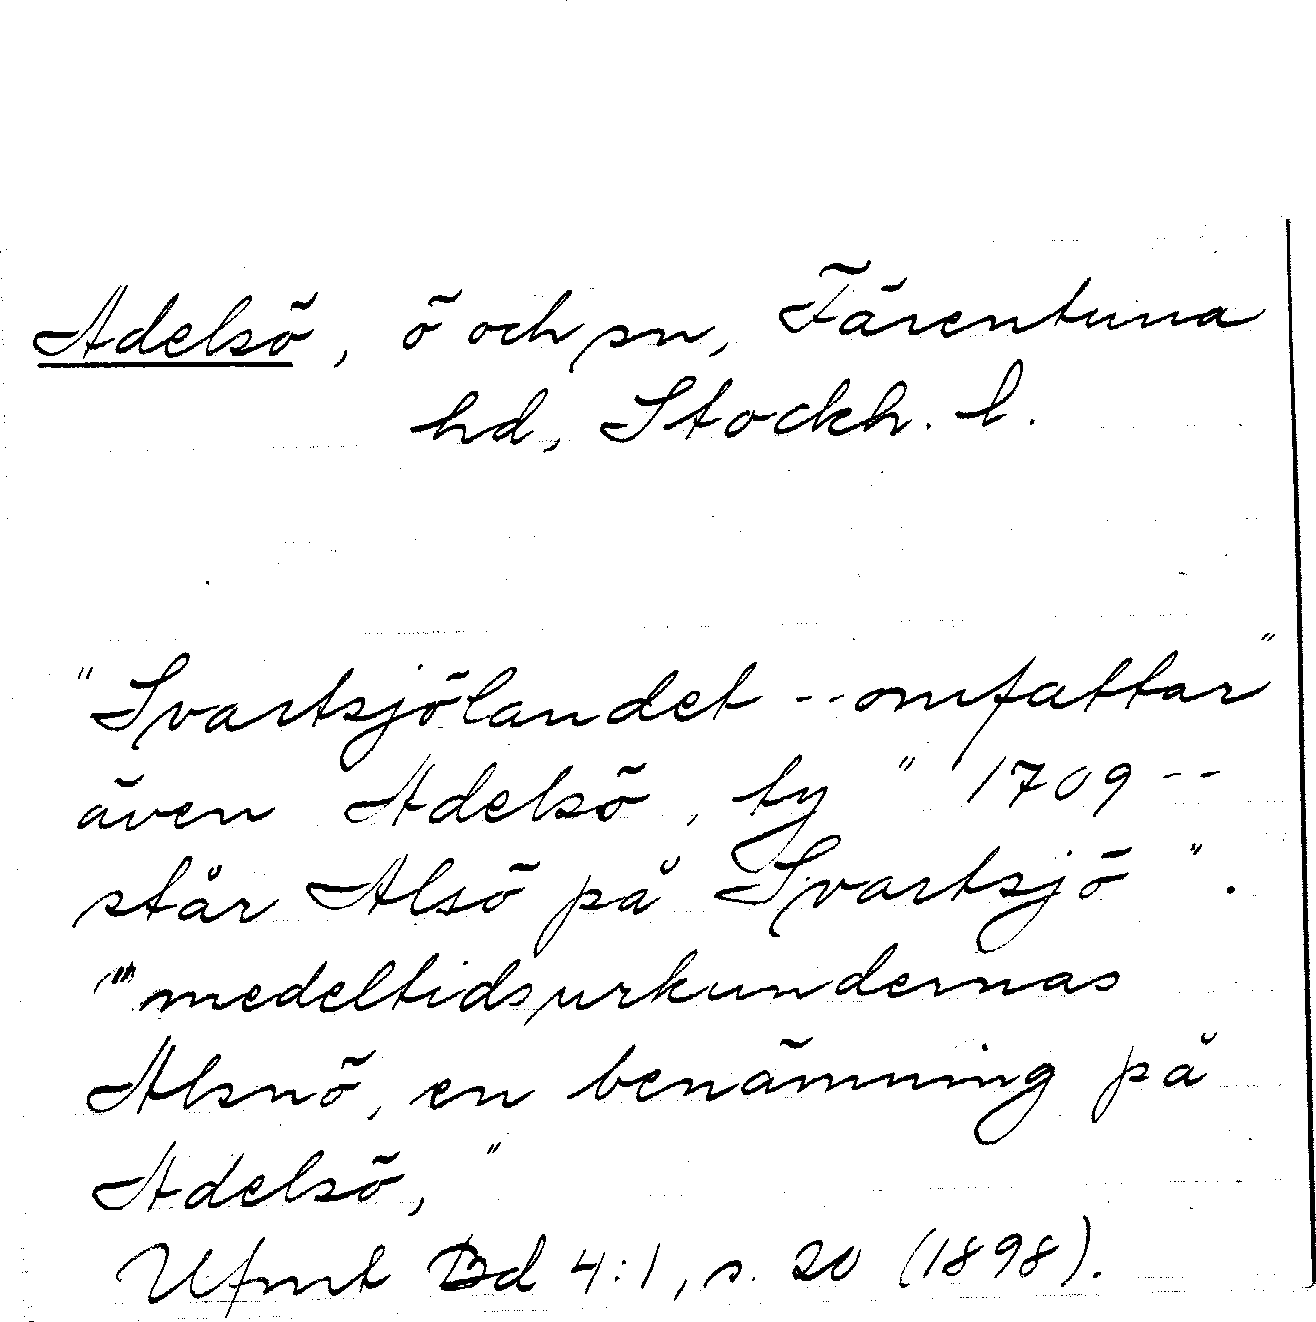 Adelsö, ö och sn, Färentuna
hd, Stockh. l.
"Svartsjölandet -- omfattar"
även Adelsö, ty " 1709 --
står Alsö på Svartsjö".
"medeltidsurkundernas
Alsnö, en benämning på
Adelsö,"
Ufmt Bd 4:1, s. 20 (1898).